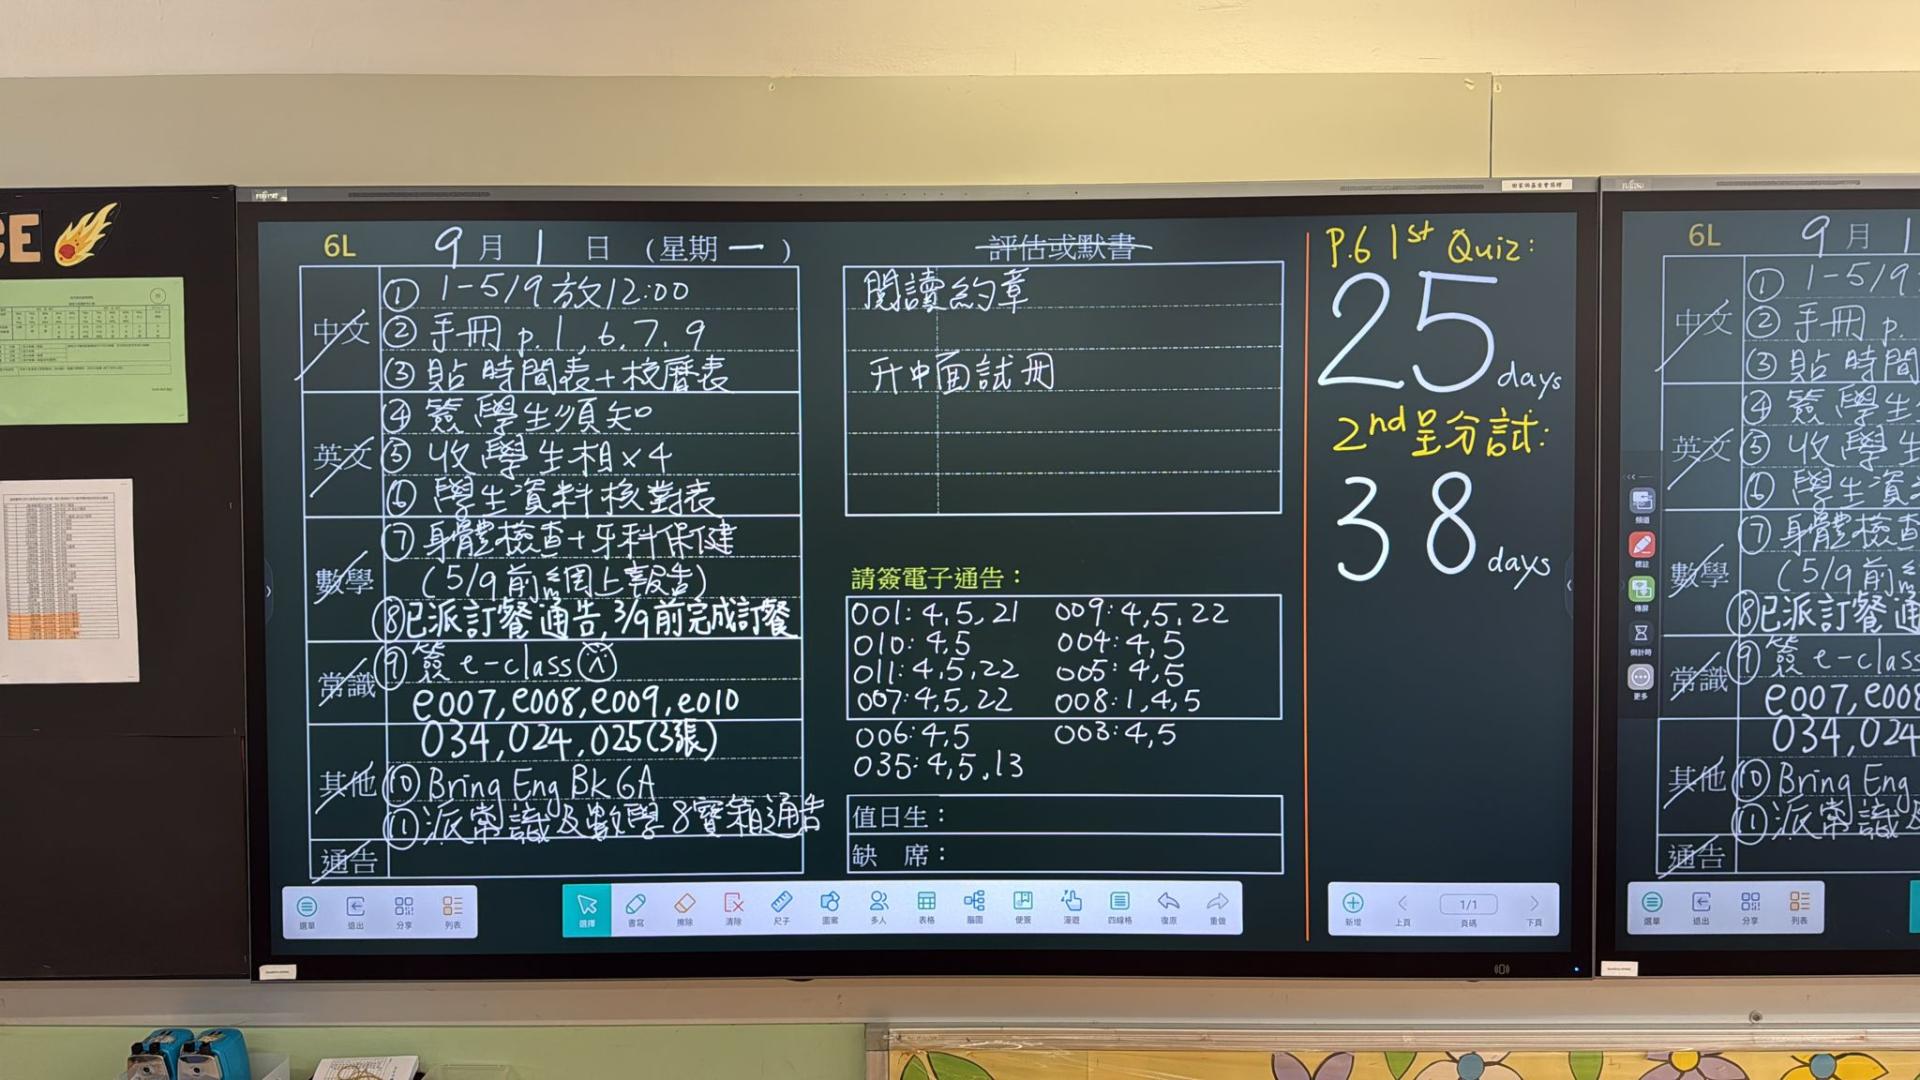 CE
FUJITSU
6L 9月1日(星期一)
中文
① 1-5/9放12:00
② 手冊 p.1,6,7,9
③ 貼時間表+校曆表
英文
④ 簽學生須知
⑤ 收學生相×4
⑥ 學生資料核對表
數學
⑦ 身體檢查+牙科保健
(5/9前網上報告)
⑧已派訂餐通告,3/9前完成訂餐
常識
⑨簽 e-class
e007,e008,e009,e010
034,024,025(3張)
其他
⑩ Bring Eng Bk 6A
⑪派常識及數學8寶箱通告
通告
評估或默書
閱讀約章
升中面試冊
請簽電子通告:
001:4,5,21 009:4,5,22
010:4,5 004:4,5
011:4,5,22 005:4,5
007:4,5,22 008:1,4,5
006:4,5 003:4,5
035:4,5,13
值日生:
缺席:
P.6 1st Quiz:
25 days
2nd呈分試:
38 days
選單 退出 分享 列表
選擇 書寫 擦除 清除 尺子 圖案 多人 表格 腦圖 便簽 漫遊 四線格 復原 重做
新增 上頁 1/1 頁碼 下頁
FUJITSU
6L 9月1
中文
① 1-5/9
② 手冊 p.
③ 貼時間
英文
④ 簽學生
⑤ 收學生
⑥ 學生資
數學
⑦ 身體檢查
(5/9前
⑧已派訂餐通
常識
⑨簽 e-class
e007,e008
034,024
其他
⑩ Bring Eng
⑪派常識及
通告
標註
傳屏
倒計時
更多
選單 退出 分享 列表